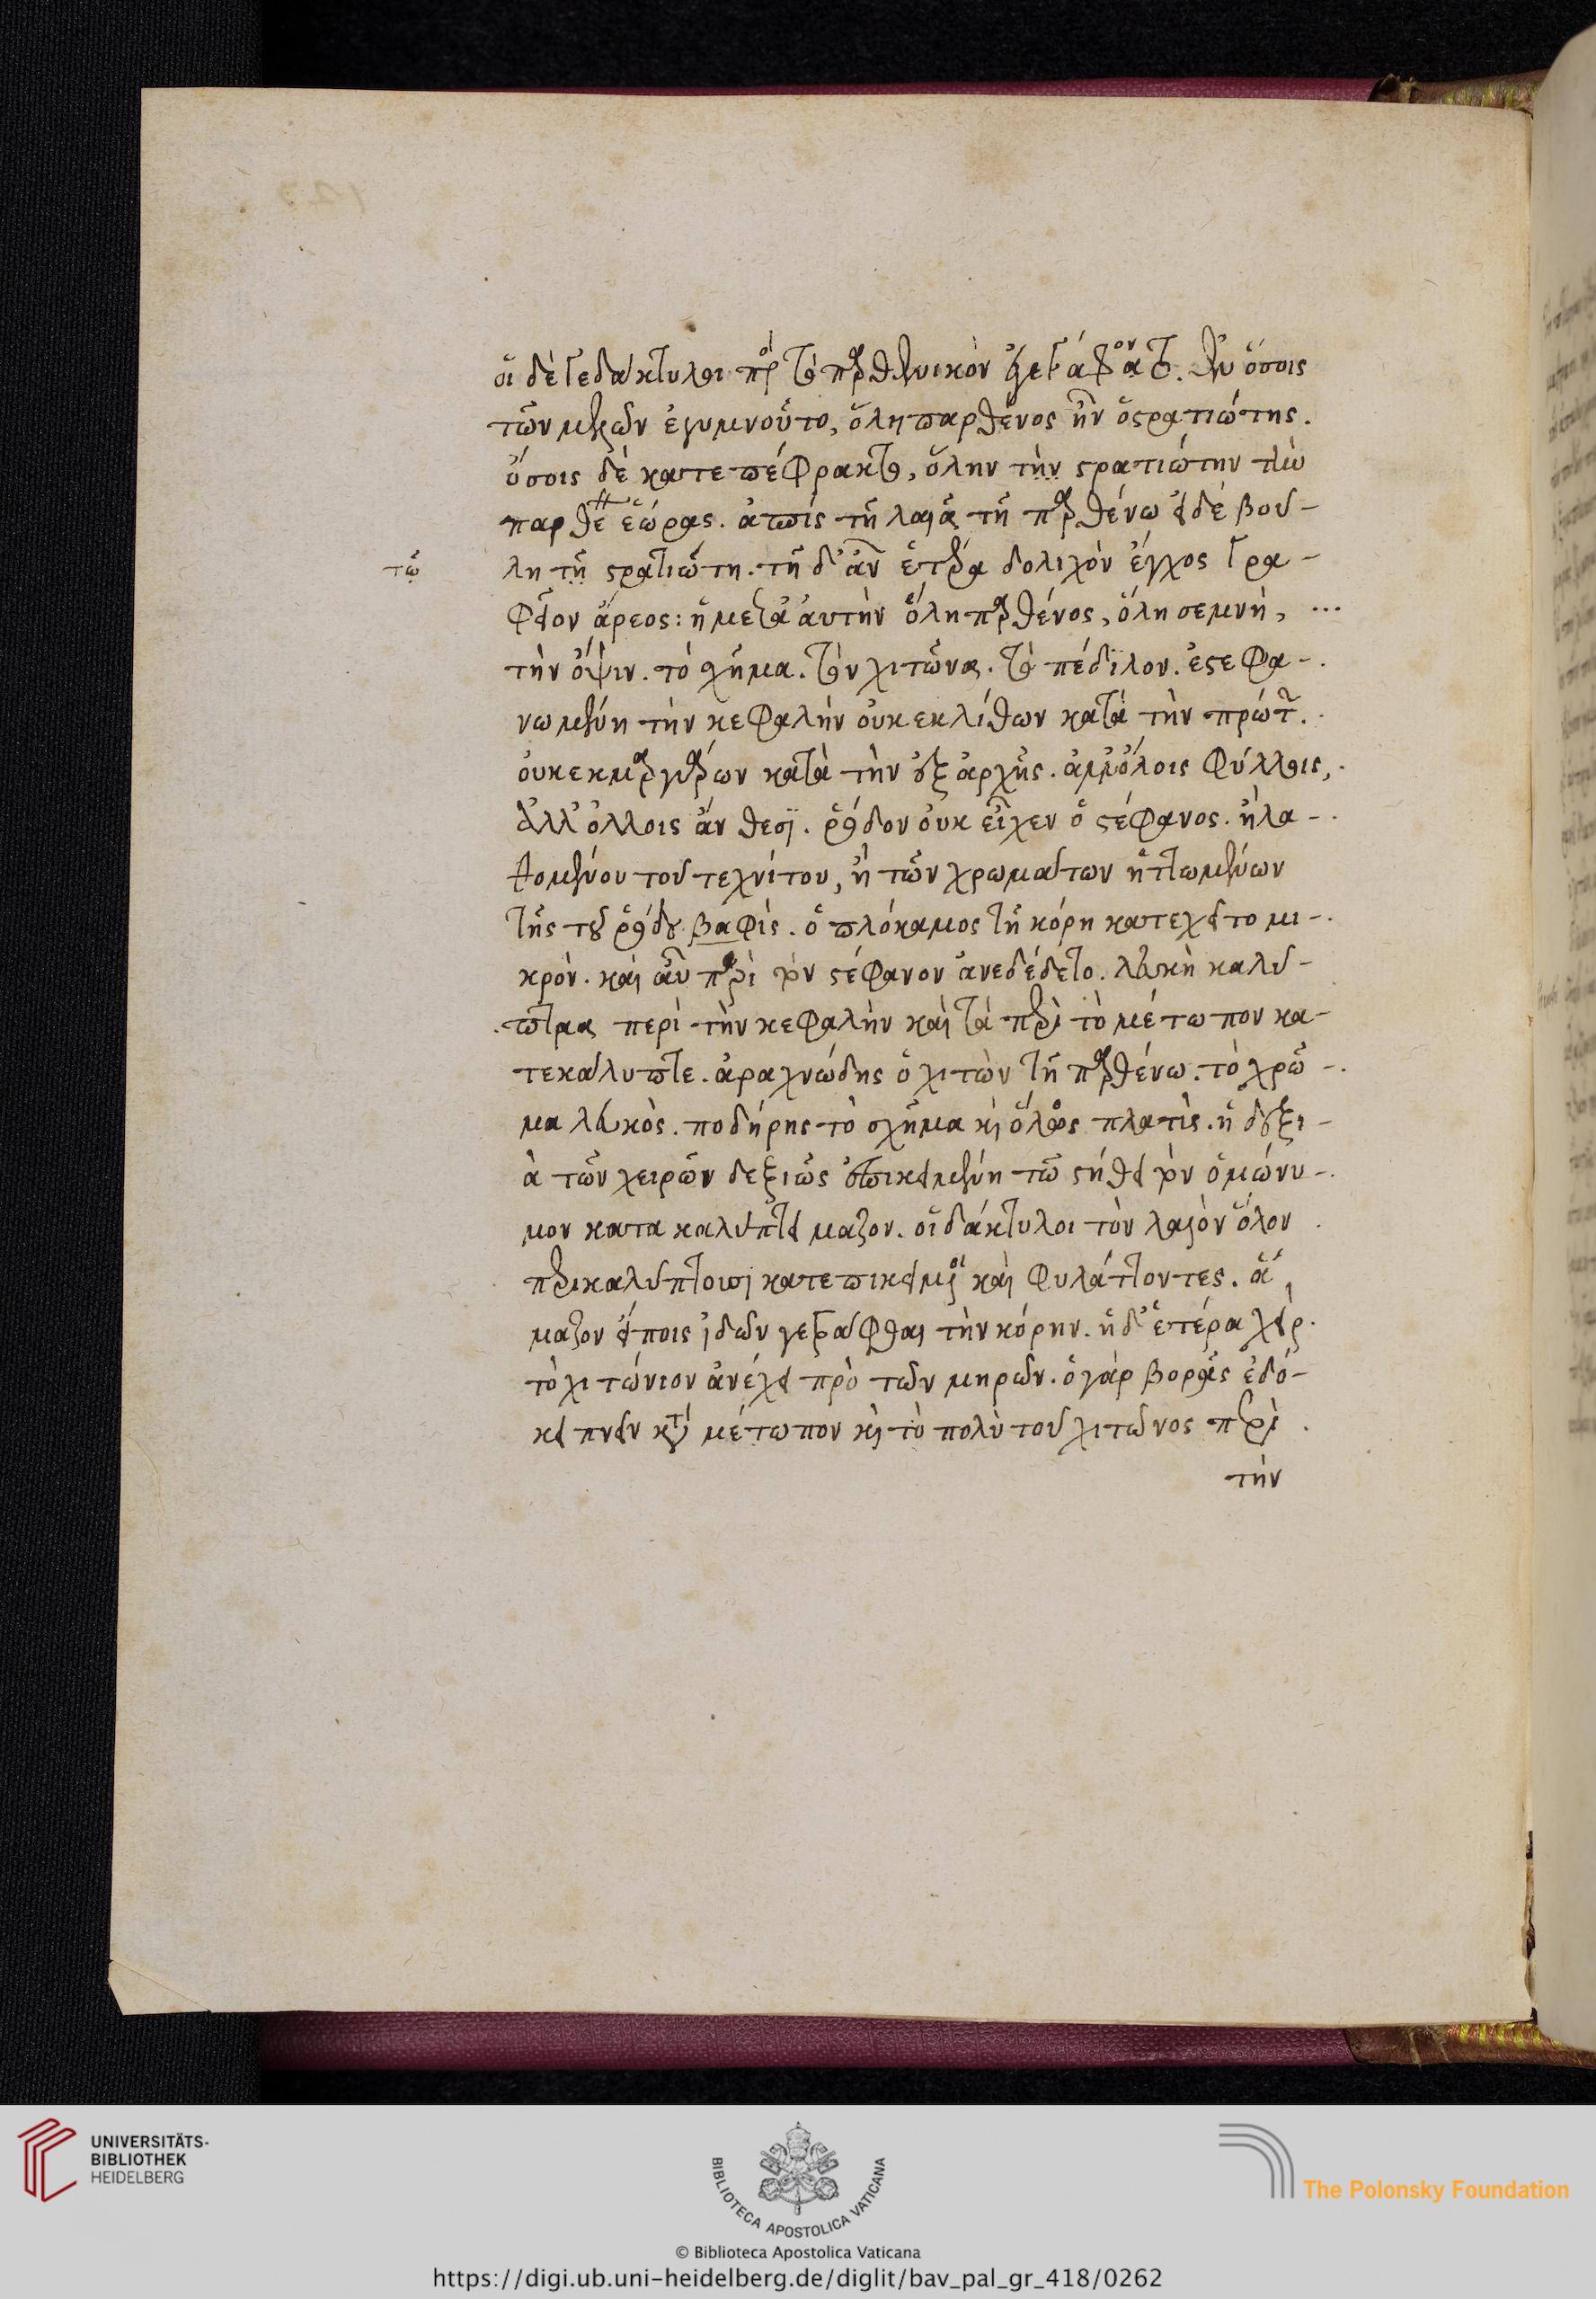 οἱ δέ γε δάκτυλοι πρὸς τὸ παρθενικὸν μετεγράφοντο. ἐν ὅσοις
τῶν μερῶν ἐγυμνοῦτο, ὅλη παρθένος ἦν ὁ στρατιώτης.
ὅσοις δὲ κατεπέφρακτο, ὅλην τὴν στρατιώτην τὴν
παρθε ἑώρας. ἀσπίς τῆ λαιᾷ τῆ παρθένω εἰ δέ βού-
τῶ
λη τῆ στρατιώτη. τῆ δ' ἂν ἑτέρα δολιχὸν ἔγχος γρα-
φεῖον ἄρεος: ἡ μετὰ αὐτὴν ὅλη παρθένος, ὅλη σεμνὴ, ...
τὴν ὄψιν. τὸ σχῆμα. τὸν χιτῶνα. τὸ πέδιλον. ἐστεφα-
νωμένη τὴν κεφαλὴν οὐκ ἐκ λίθων κατὰ τὴν πρώτ.
οὐκ ἐκ μαργάρων κατὰ τὴν ἐξ ἀρχῆς. ἀλλ' ὅλοις φύλλοις,
ἀλλ' ὅλλοις ἄνθεσι. ῥόδον οὐκ εἶχεν ὁ στέφανος. ἢ λα-
θομένου τοῦ τεχνίτου, ἢ τῶν χρωμάτων ἡττωμένων
τῆς τοῦ ῥόδου βαφίς. ὁ πλόκαμος τῆ κόρη κατεχεῖτο μι-
κρὸν. καὶ αὖ περὶ τὸν στέφανον ἀνεδέδετο. λευκὴ καλύ-
πτρα περὶ τὴν κεφαλὴν καὶ τὰ περὶ τὸ μέτωπον κα-
τεκάλυπτε. ἀραχνώδης ὁ χιτὼν τῆ παρθένω. τὸ χρῶ-
μα λευκὸς. ποδήρης τὸ σχῆμα καὶ ὅλως πλατὶς. ἡ δεξι-
ὰ τῶν χειρῶν δεξιῶς ἐπικειμένη τῶ στήθει τὸν ὁμώνυ-
μον κατακαλύπτει μαζον. οἱ δάκτυλοι τὸν λαιὸν ὅλον
περικαλύπτουσι κατεπικείμενοι καὶ φυλάττοντες. ἀ
μαζον εἴποις ἰδὼν γεγράφθαι τὴν κόρην. ἡ δ' ἑτέρα χεὶρ
τὸ χιτώνιον ἀνέχει πρὸ τῶν μηρῶν. ὁ γὰρ βορρᾶς ἐδό-
κει πνεῖν κατὰ μέτωπον καὶ τὸ πολὺ τοῦ χιτῶνος περὶ
τὴν
UNIVERSITÄTS-
BIBLIOTHEK
HEIDELBERG
BIBLIOTECA APOSTOLICA VATICANA
© Biblioteca Apostolica Vaticana
The Polonsky Foundation
https://digi.ub.uni-heidelberg.de/diglit/bav_pal_gr_418/0262